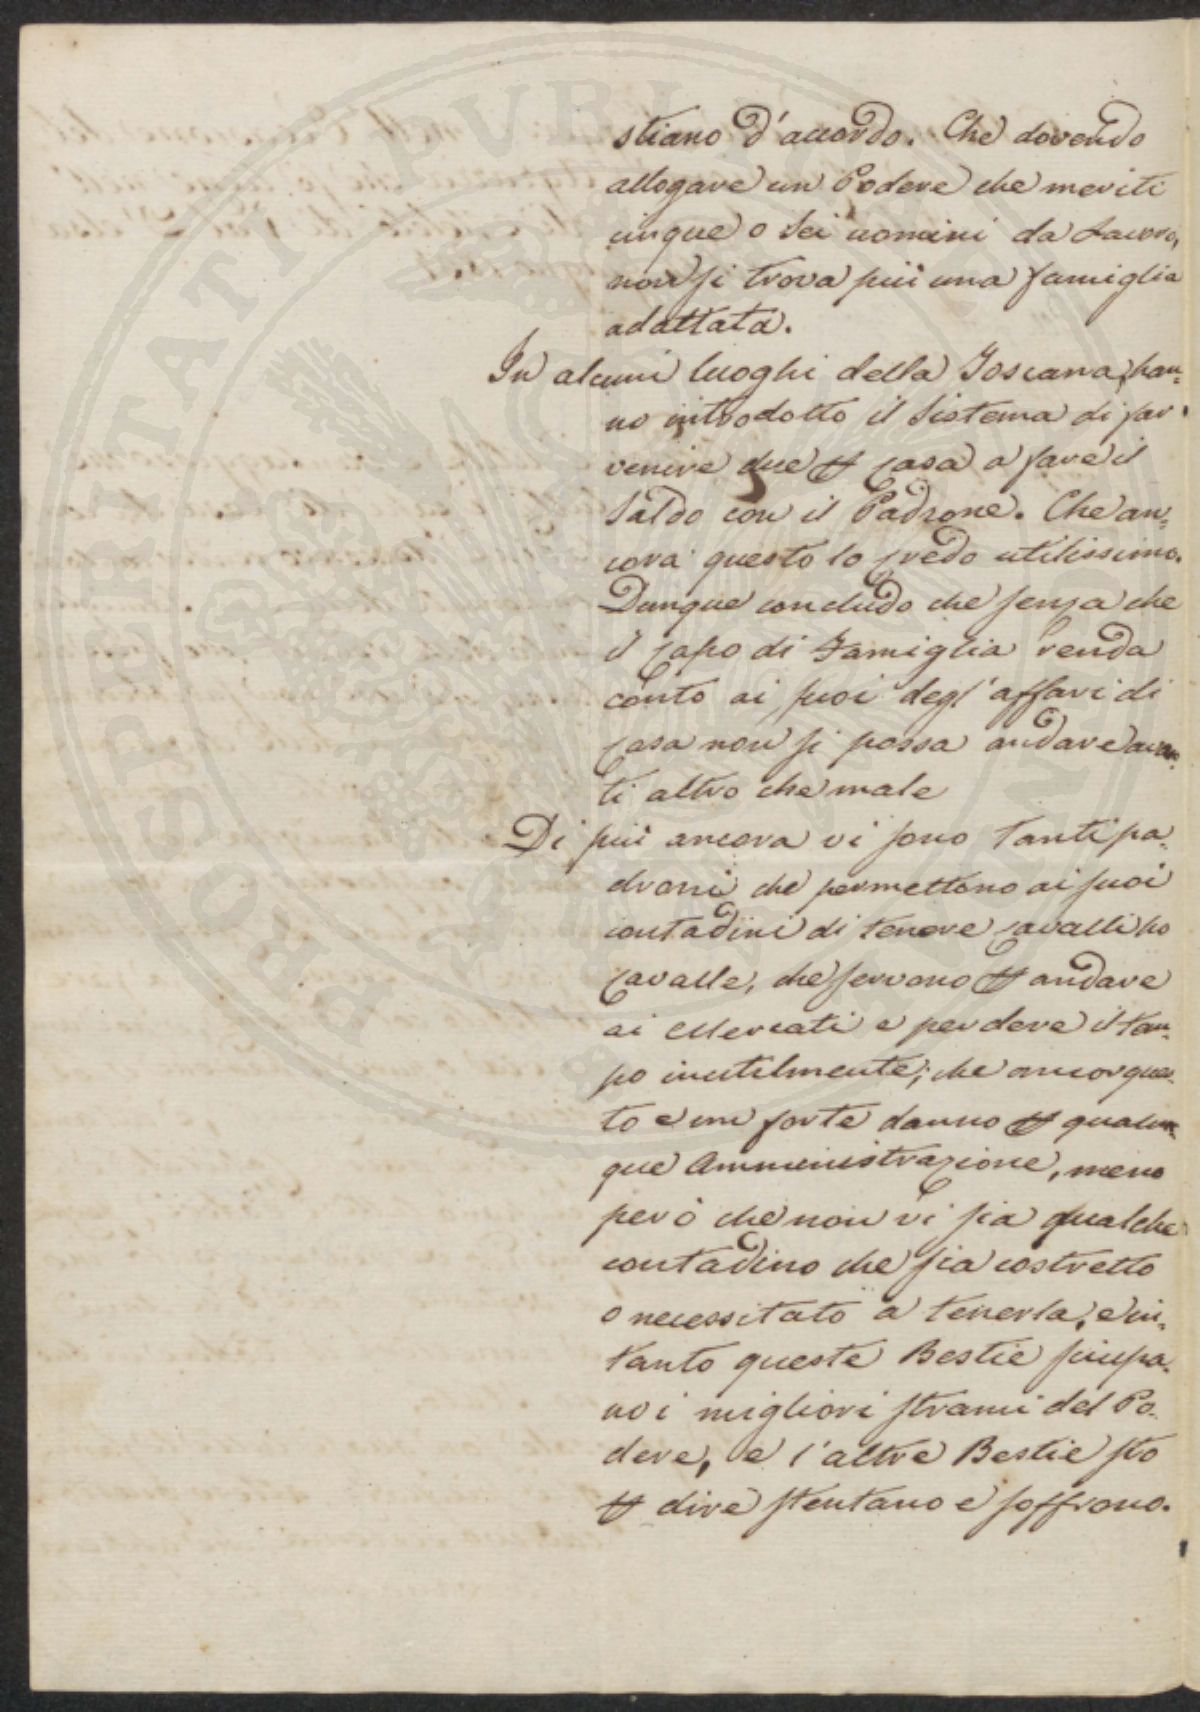 stiano d'accordo. Che dovendo
allogare un Podere che meriti
cinque o sei uomini da Lavoro,
non si trova più una famiglia
adattata.
In alcuni luoghi della Toscana, han=
no introdotto il Sistema di far
venire due ꝑ casa a fare il
Saldo con il Padrone. Che an=
cora questo lo credo utilissimo.
Dunque concludo che senza che
il Capo di Famiglia renda
conto ai suoi degl'affari di
casa non si possa andare avan=
ti altro che male
Di più ancora vi sono tanti pa=
droni che permettono ai suoi
contadini di tenere cavalli ho
cavalle, che servono ꝑ andare
ai Mercati e perdere il tem=
po inutilmente; che ancor ques=
to e un forte danno ꝑ qualun=
que Amministrazione, meno
però che non vi sia qualche
contadino che sia costretto
o necessitato a tenerla, e in=
tanto queste Bestie sciupa=
no i migliori strami del Po=
dere, e l'altre Bestie sto
ꝑ dire stentano e soffrono.
PROSPERITATI PUBLICAE